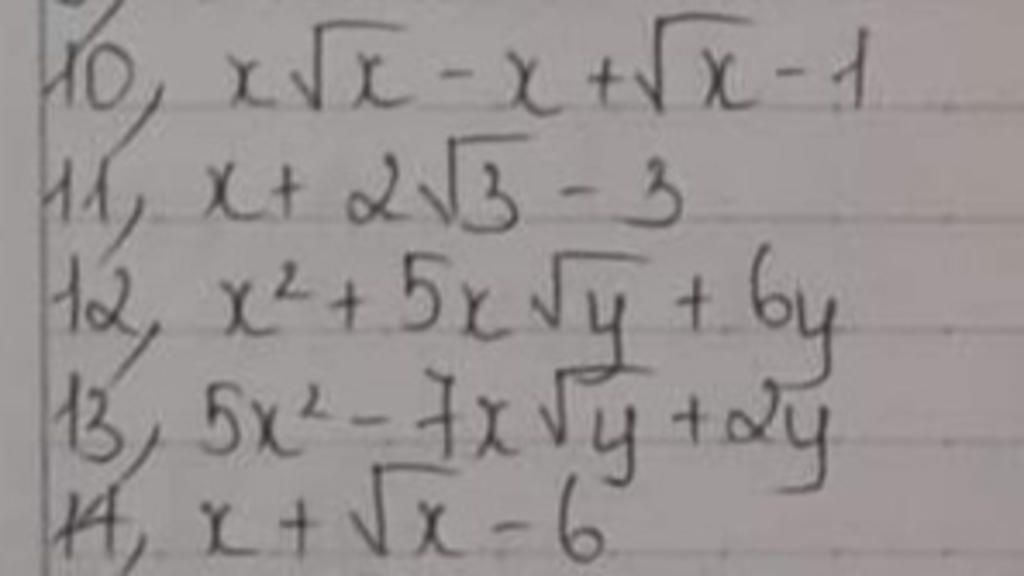 10, x√x - x + √x - 1
11, x + 2√3 - 3
12, x² + 5x√y + 6y
13, 5x² - 7x√y + 2y
14, x + √x - 6